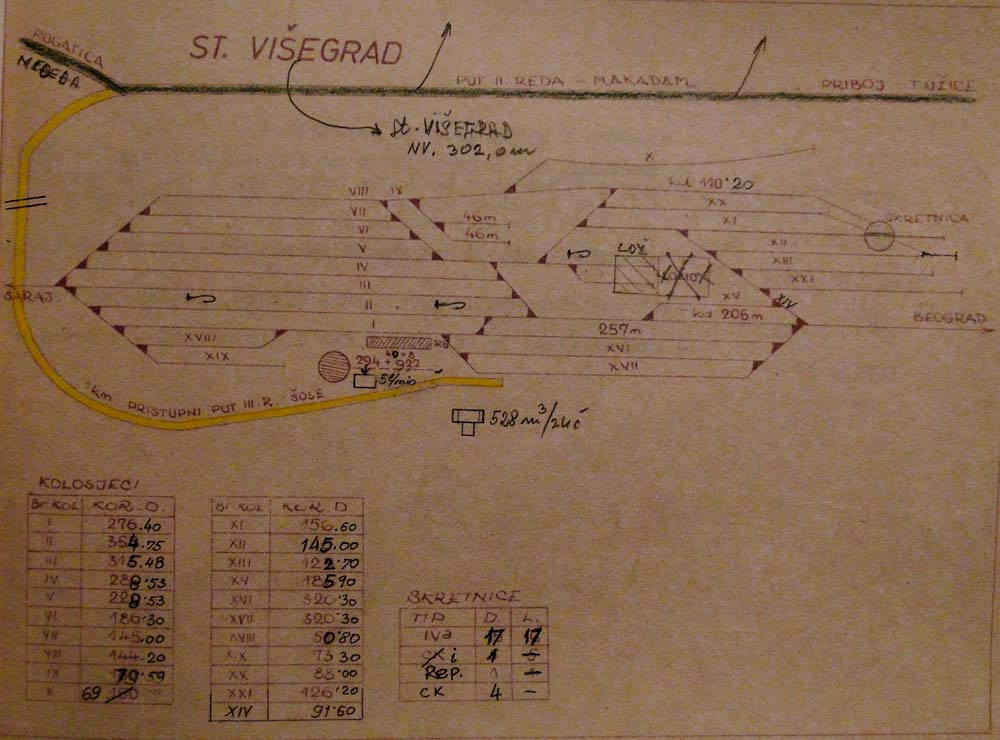 ROGATICA
MEĐEĐA
ST. VIŠEGRAD
PUT II. REDA – MAKADAM
PRIBOJ T UŽICE
St. VIŠEGRAD
NV. 302,0 m
X
VIII IX
kol 110'20
VII
46m
XX
SKRETNICA
VI
46m
XI
V
LOŽ
XII
IV
XIII
III
XXI
SARAJ.
II
XV
XIV
I
kol 206m
BEOGRAD
257m
XVIII
XVI
XIX
294 + 922
XVII
5ℓ/min
1km PRISTUPNI PUT III. R. ŠOSE
528 m³/24č
KOLOSJECI
Br KOL KOR. D.
I 276.40
II 354.75
III 315.48
IV 288.53
V 228.53
VI 186.30
VII 145.00
VIII 144.20
IX 79.59
X 69
Br KOL KOR D
XI 156.60
XII 145.00
XIII 122.70
XV 185.90
XVI 320.30
XVII 320.30
XVIII 50.80
XIX 73 30
XX 88.00
XXI 126.20
XIV 91.60
SKRETNICE
TIP D. L.
IVa 17 17
i 1
Rep. 1
CK 4 –